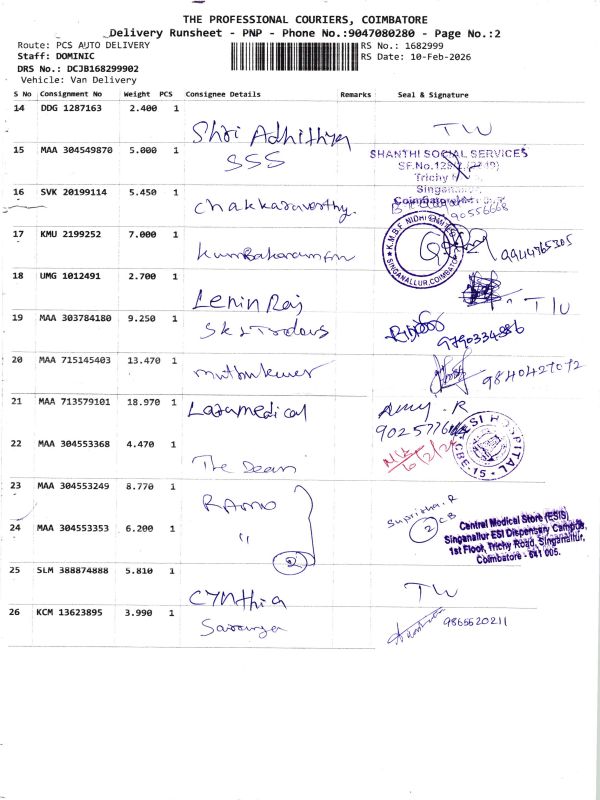 THE PROFESSIONAL COURIERS, COIMBATORE
Delivery Runsheet - PNP - Phone No.:9047080280 - Page No.:2
Route: PCS AUTO DELIVERY
RS No.: 1682999
Staff: DOMINIC
RS Date: 10-Feb-2026
DRS No.: DCJB168299902
Vehicle: Van Delivery
S No Consignment No Weight PCS Consignee Details Remarks Seal & Signature
14 DDG 1287163 2.400 1
Shri Adhithya TW
15 MAA 304549870 5.000 1
SSS
SHANTHI SOCIAL SERVICES
Trichy
16 SVK 20199114 5.450 1
Chakkaravorthy.
17 KMU 2199252 7.000 1
K.M.B.F. NIDHI LIMITED
SINGANALLUR, COIMBATORE
9944765305
18 UMG 1012491 2.700 1
Lenin Raj
19 MAA 303784180 9.250 1
9790334886
20 MAA 715145403 13.470 1
muthukumar 9840427072
21 MAA 713579101 18.970 1
Lazamedical
22 MAA 304553368 4.470 1
The Dean
ESI HOSPITAL
CBE-15
23 MAA 304553249 8.770 1
24 MAA 304553353 6.200 1
"
2
Supritha.R
2 CB
Central Medical Store (ESIS)
Singanallur ESI Dispensary Campus,
1st Floor, Trichy Road, Singanallur,
Coimbatore - 641 005.
25 SLM 388874888 5.810 1
Cynthia TW
26 KCM 13623895 3.990 1
Saranya 9865520211